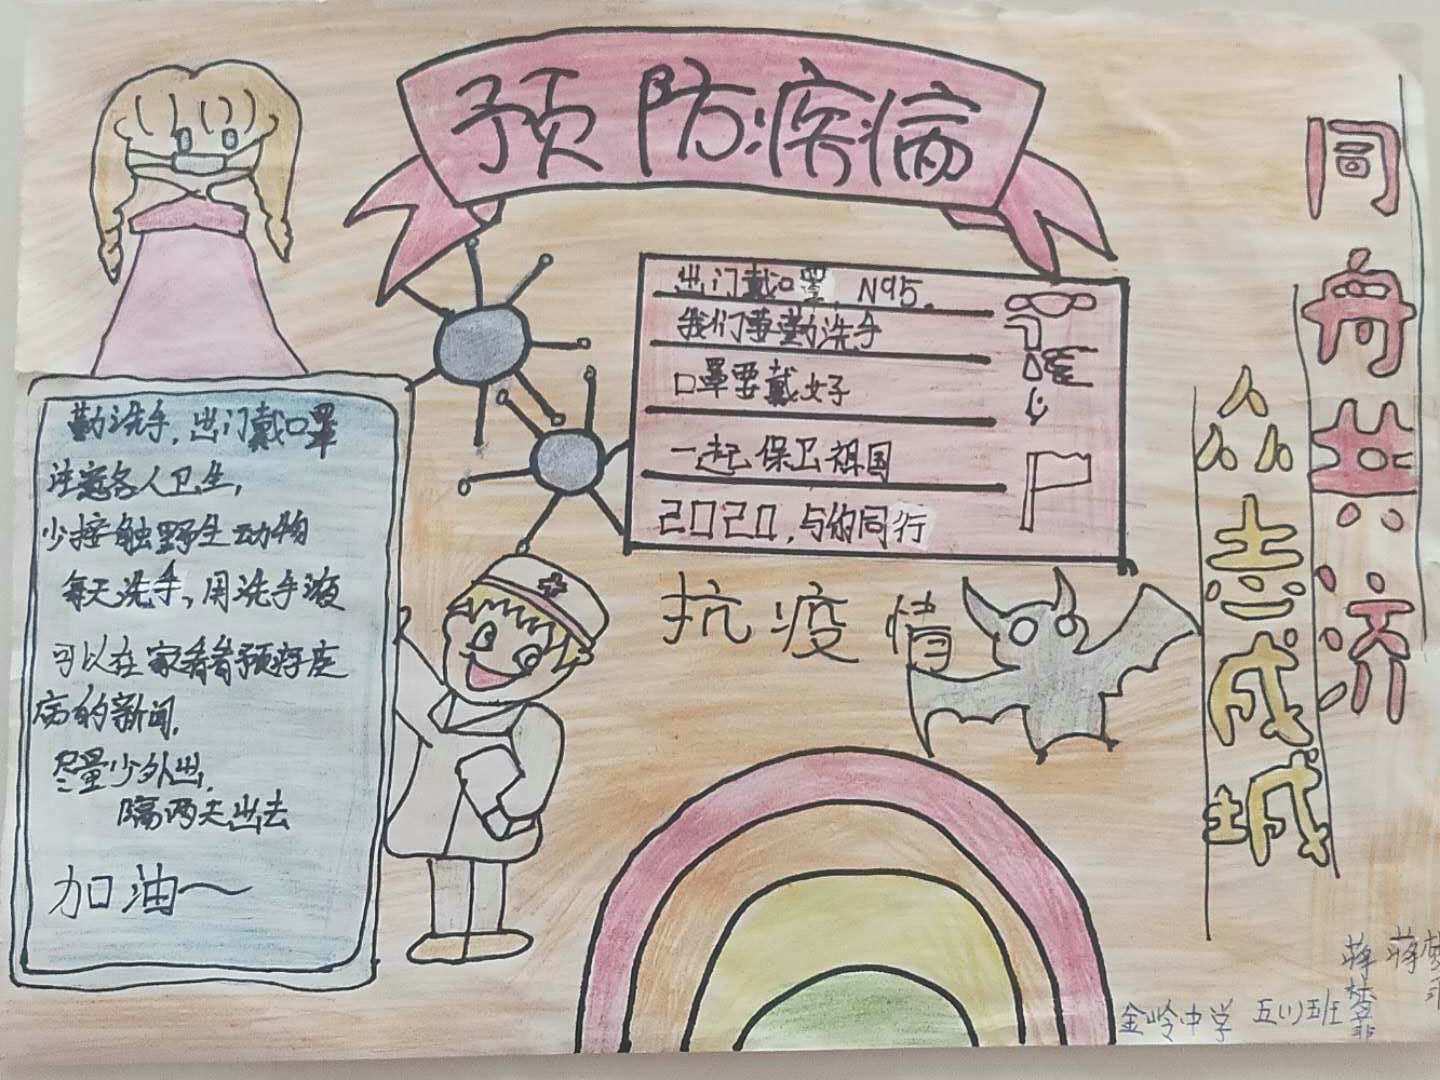 预防疾病
出门戴口罩,N95。
我们要勤洗手
口罩要戴好
一起保卫祖国
2020,与你同行
勤洗手,出门戴口罩
注意各人卫生,
少接触野生动物
每天洗手,用洗手液
可以在家看看预好疫
病的新闻,
尽量少外出,
隔两天出去
加油~
抗疫情
同舟共济
众志成城
金岭中学 五(1)班
蒋梦
蒋梦